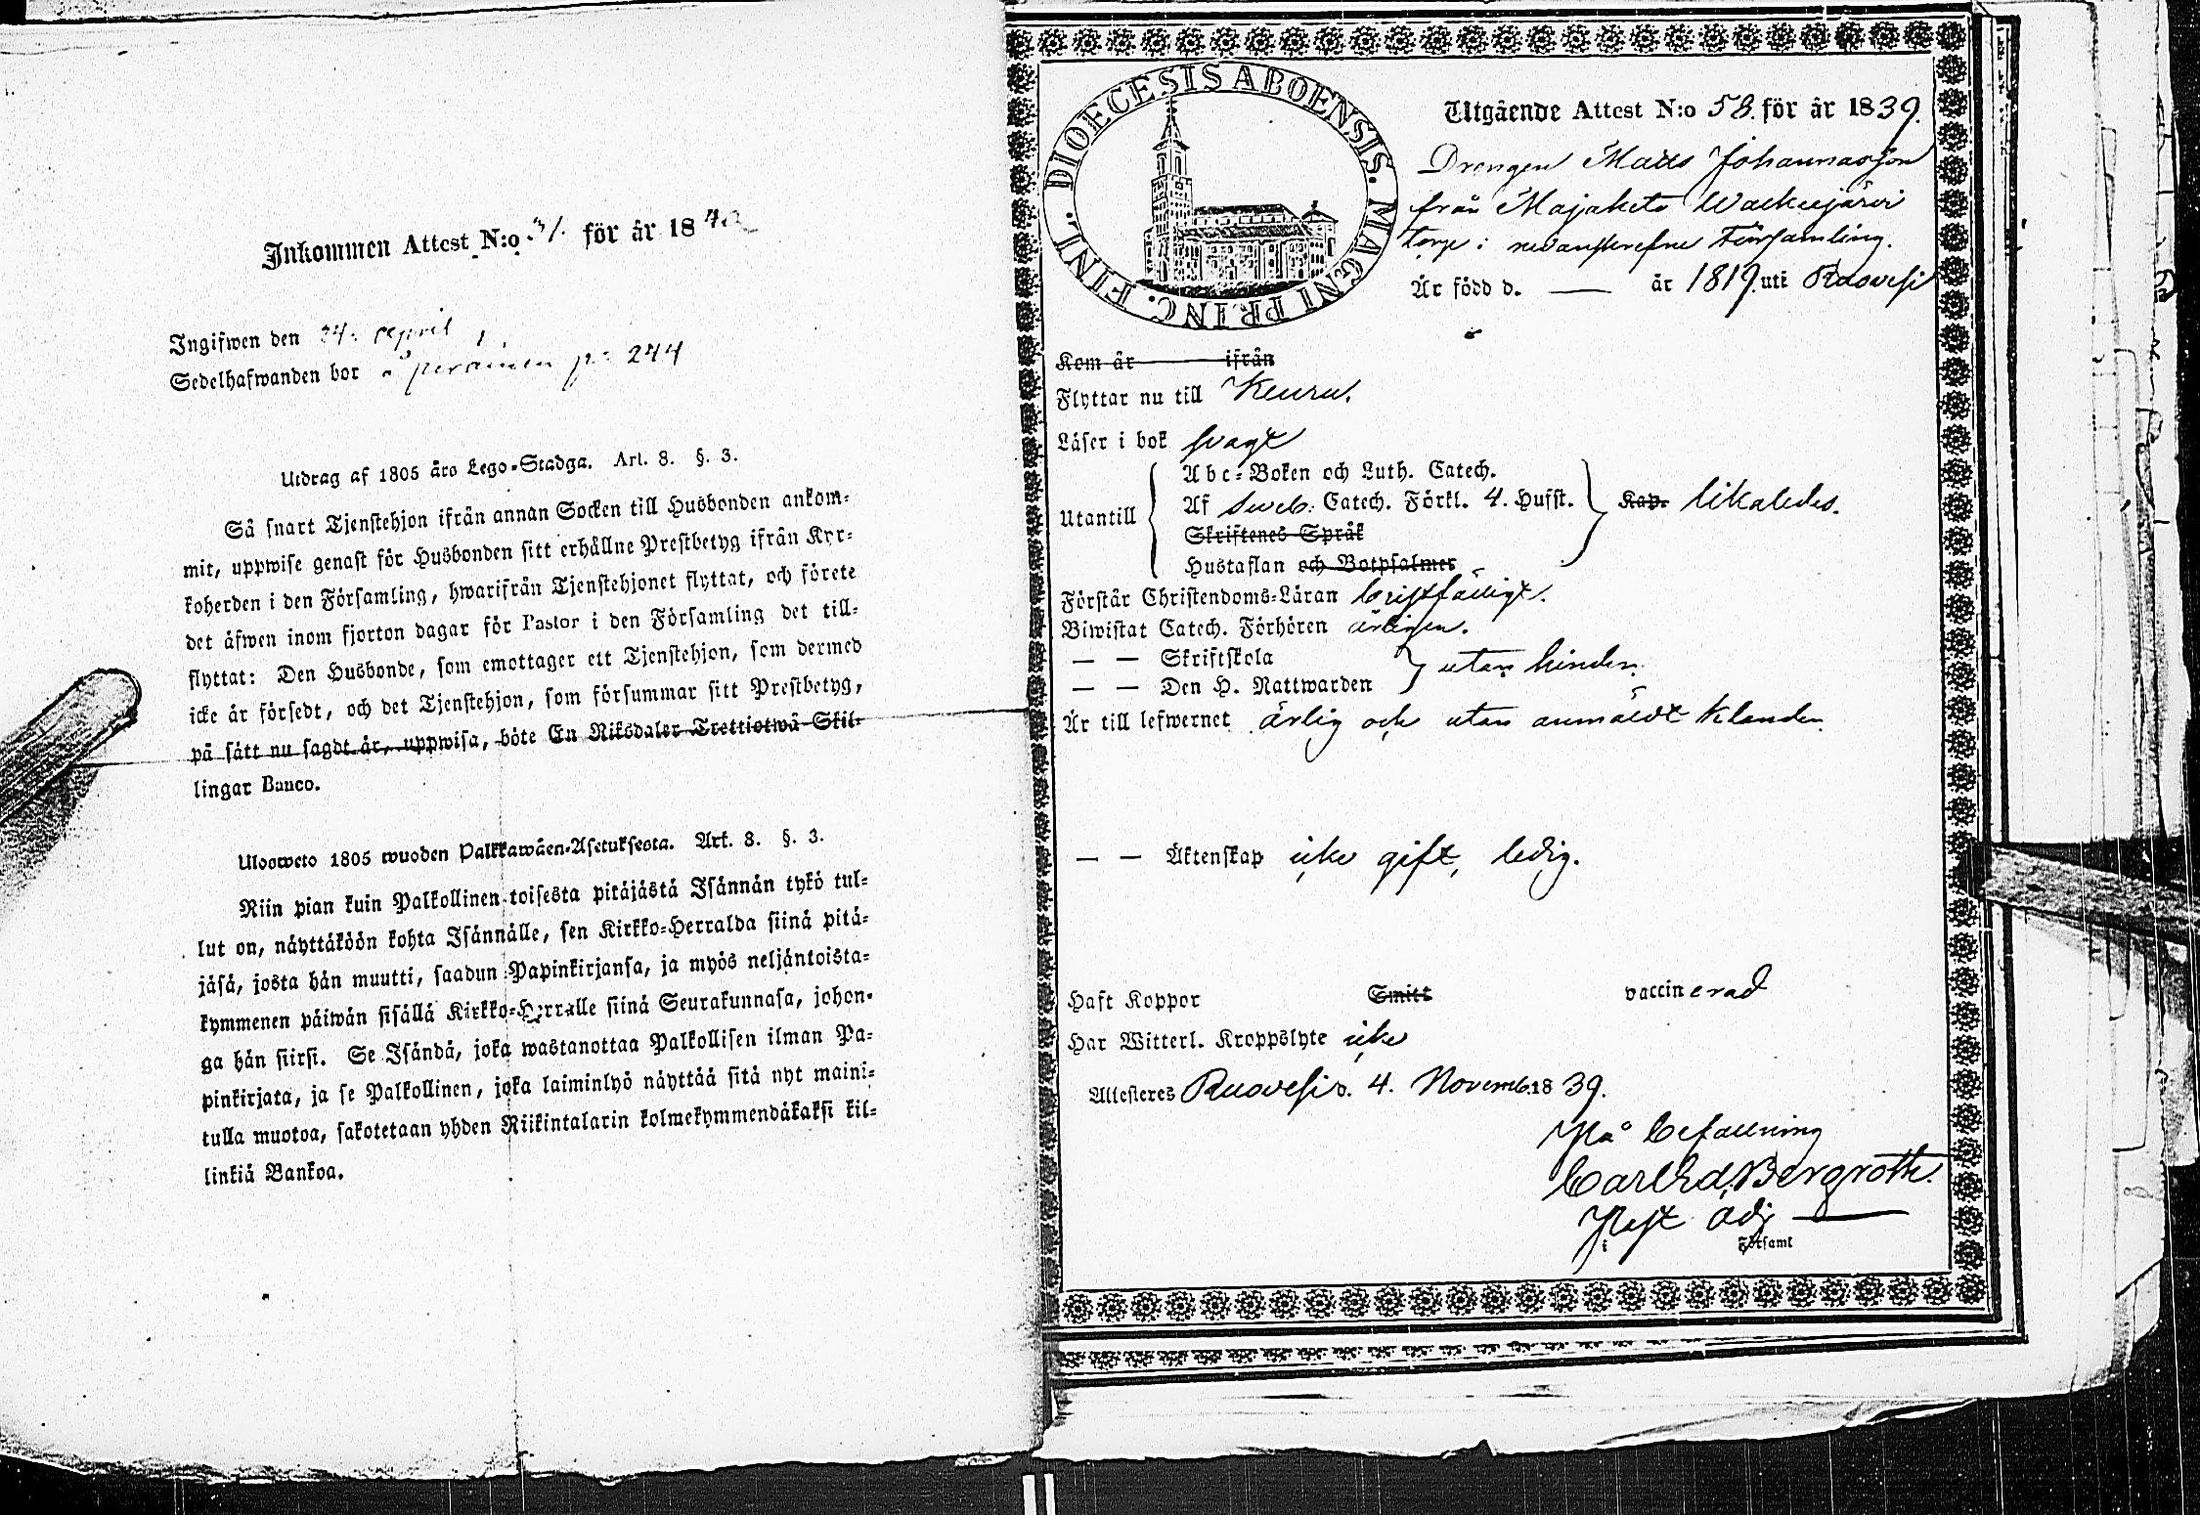 Inkommen Attest N:o 31. för år 1840
Ingifwen den 24. april,
Sedelhafwanden bor å peräinen p: 244
Utdrag af 1805 års Lego-Stadga. Art. 8. §. 3.
Så snart Tjenstehjon ifrån annan Socken till Husbonden ankom-
mit, uppwise genast för Husbonden sitt erhållne Prestbetyg ifrån Kyr-
koherden i den Församling, hwarifrån Tjenstehjonet flyttat, och förete
det äfwen inom fjorton dagar för Pastor i den Församling det till-
flyttat: Den Husbonde, som emottager ett Tjenstehjon, som dermed
icke är försedt, och det Tjenstehjon, som försummar sitt Prestbetyg,
på sätt nu sagdt är, uppwisa, böte En Riksdaler Trettiotwå Skil-
lingar Banco.
Ulosweto 1805 wuoden Palkkawäen-Asetuksesta. Art. 8. §. 3.
Niin pian kuin Palkollinen toisesta pitäjästä Isännän tykö tul-
lut on, näyttäköön kohta Isännälle, sen Kirkko-Herralda siinä pitä-
jäsä, josta hän muutti, saadun Papinkirjansa, ja myös neljäntoista-
kymmenen päiwän sisällä Kirkko-Herralle siinä Seurakunnasa, johon-
ga hän siirsi. Se Isändä, joka wastanottaa Palkollisen ilman Pa-
pinkirjata, ja se Palkollinen, joka laiminlyö näyttää sitä nyt maini-
tulla muotoa, sakotetaan yhden Riikintalarin kolmekymmendäkaksi kil-
linkiä Bankoa.
DIOECESIS ABOENSIS. MAGNI PRINC. FINL.
Utgående Attest N:o 58. för år 1839.
Drengen Matts Johannasson
från Majakets Wackerjärvi
torp i nedanskrefne Församling.
Är född d. — år 1819. uti Ruovesi
Kom år ifrån
Flyttar nu till Keuru.
Läser i bok svagt
Abc-Boken och Luth. Catech.
Utantill Af Sveb. Catech. Förkl. 4. Hufst. Kap. likaledes.
Skriftenes Språk
Hustaflan och Botpsalmer
Förstår Christendoms-Läran bristfälligt.
Biwistat Catech. Förhören årligen.
— — Skriftskola
— — Den H. Nattwarden utan hinder.
Är till lefwernet ärlig och utan anmäldt klander.
— — Äktenskap icke gift, ledig.
Haft Koppor Smitt vaccinerad
Har Witterl. Kroppslyte icke
Attesteres Ruovesi d. 4. Novemb. 1839.
På befallning
Carl Ed. Bergroth.
Past Adj —
i Församl